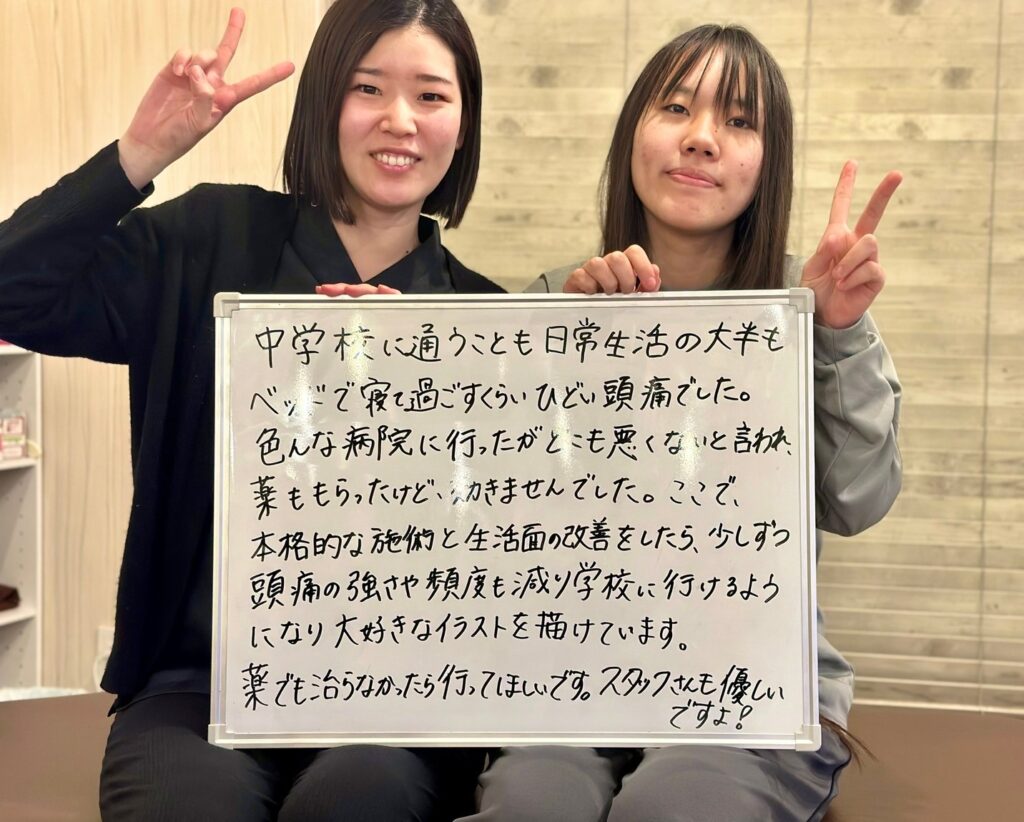 中学校に通うことも日常生活の大半も
ベッドで寝て過ごすくらいひどい頭痛でした。
色んな病院に行ったがどこも悪くないと言われ、
薬ももらったけど、効きませんでした。ここで、
本格的な施術と生活面の改善をしたら、少しずつ
頭痛の強さや頻度も減り学校に行けるよう
になり大好きなイラストを描けています。
薬でも治らなかったら行ってほしいです。スタッフさんも優しい
ですよ!